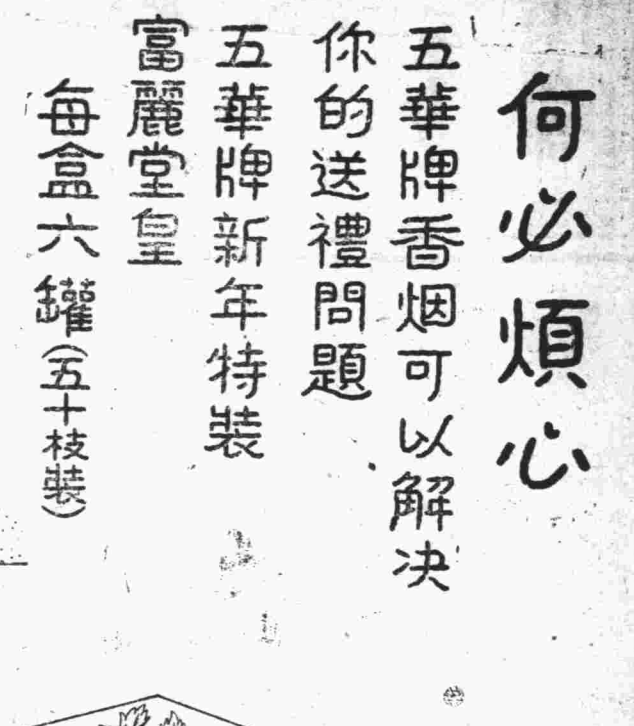 何必煩心
五華牌香烟可以解决
你的送禮問題
五華牌新年特裝
富麗堂皇
每盒六罐(五十枝裝)